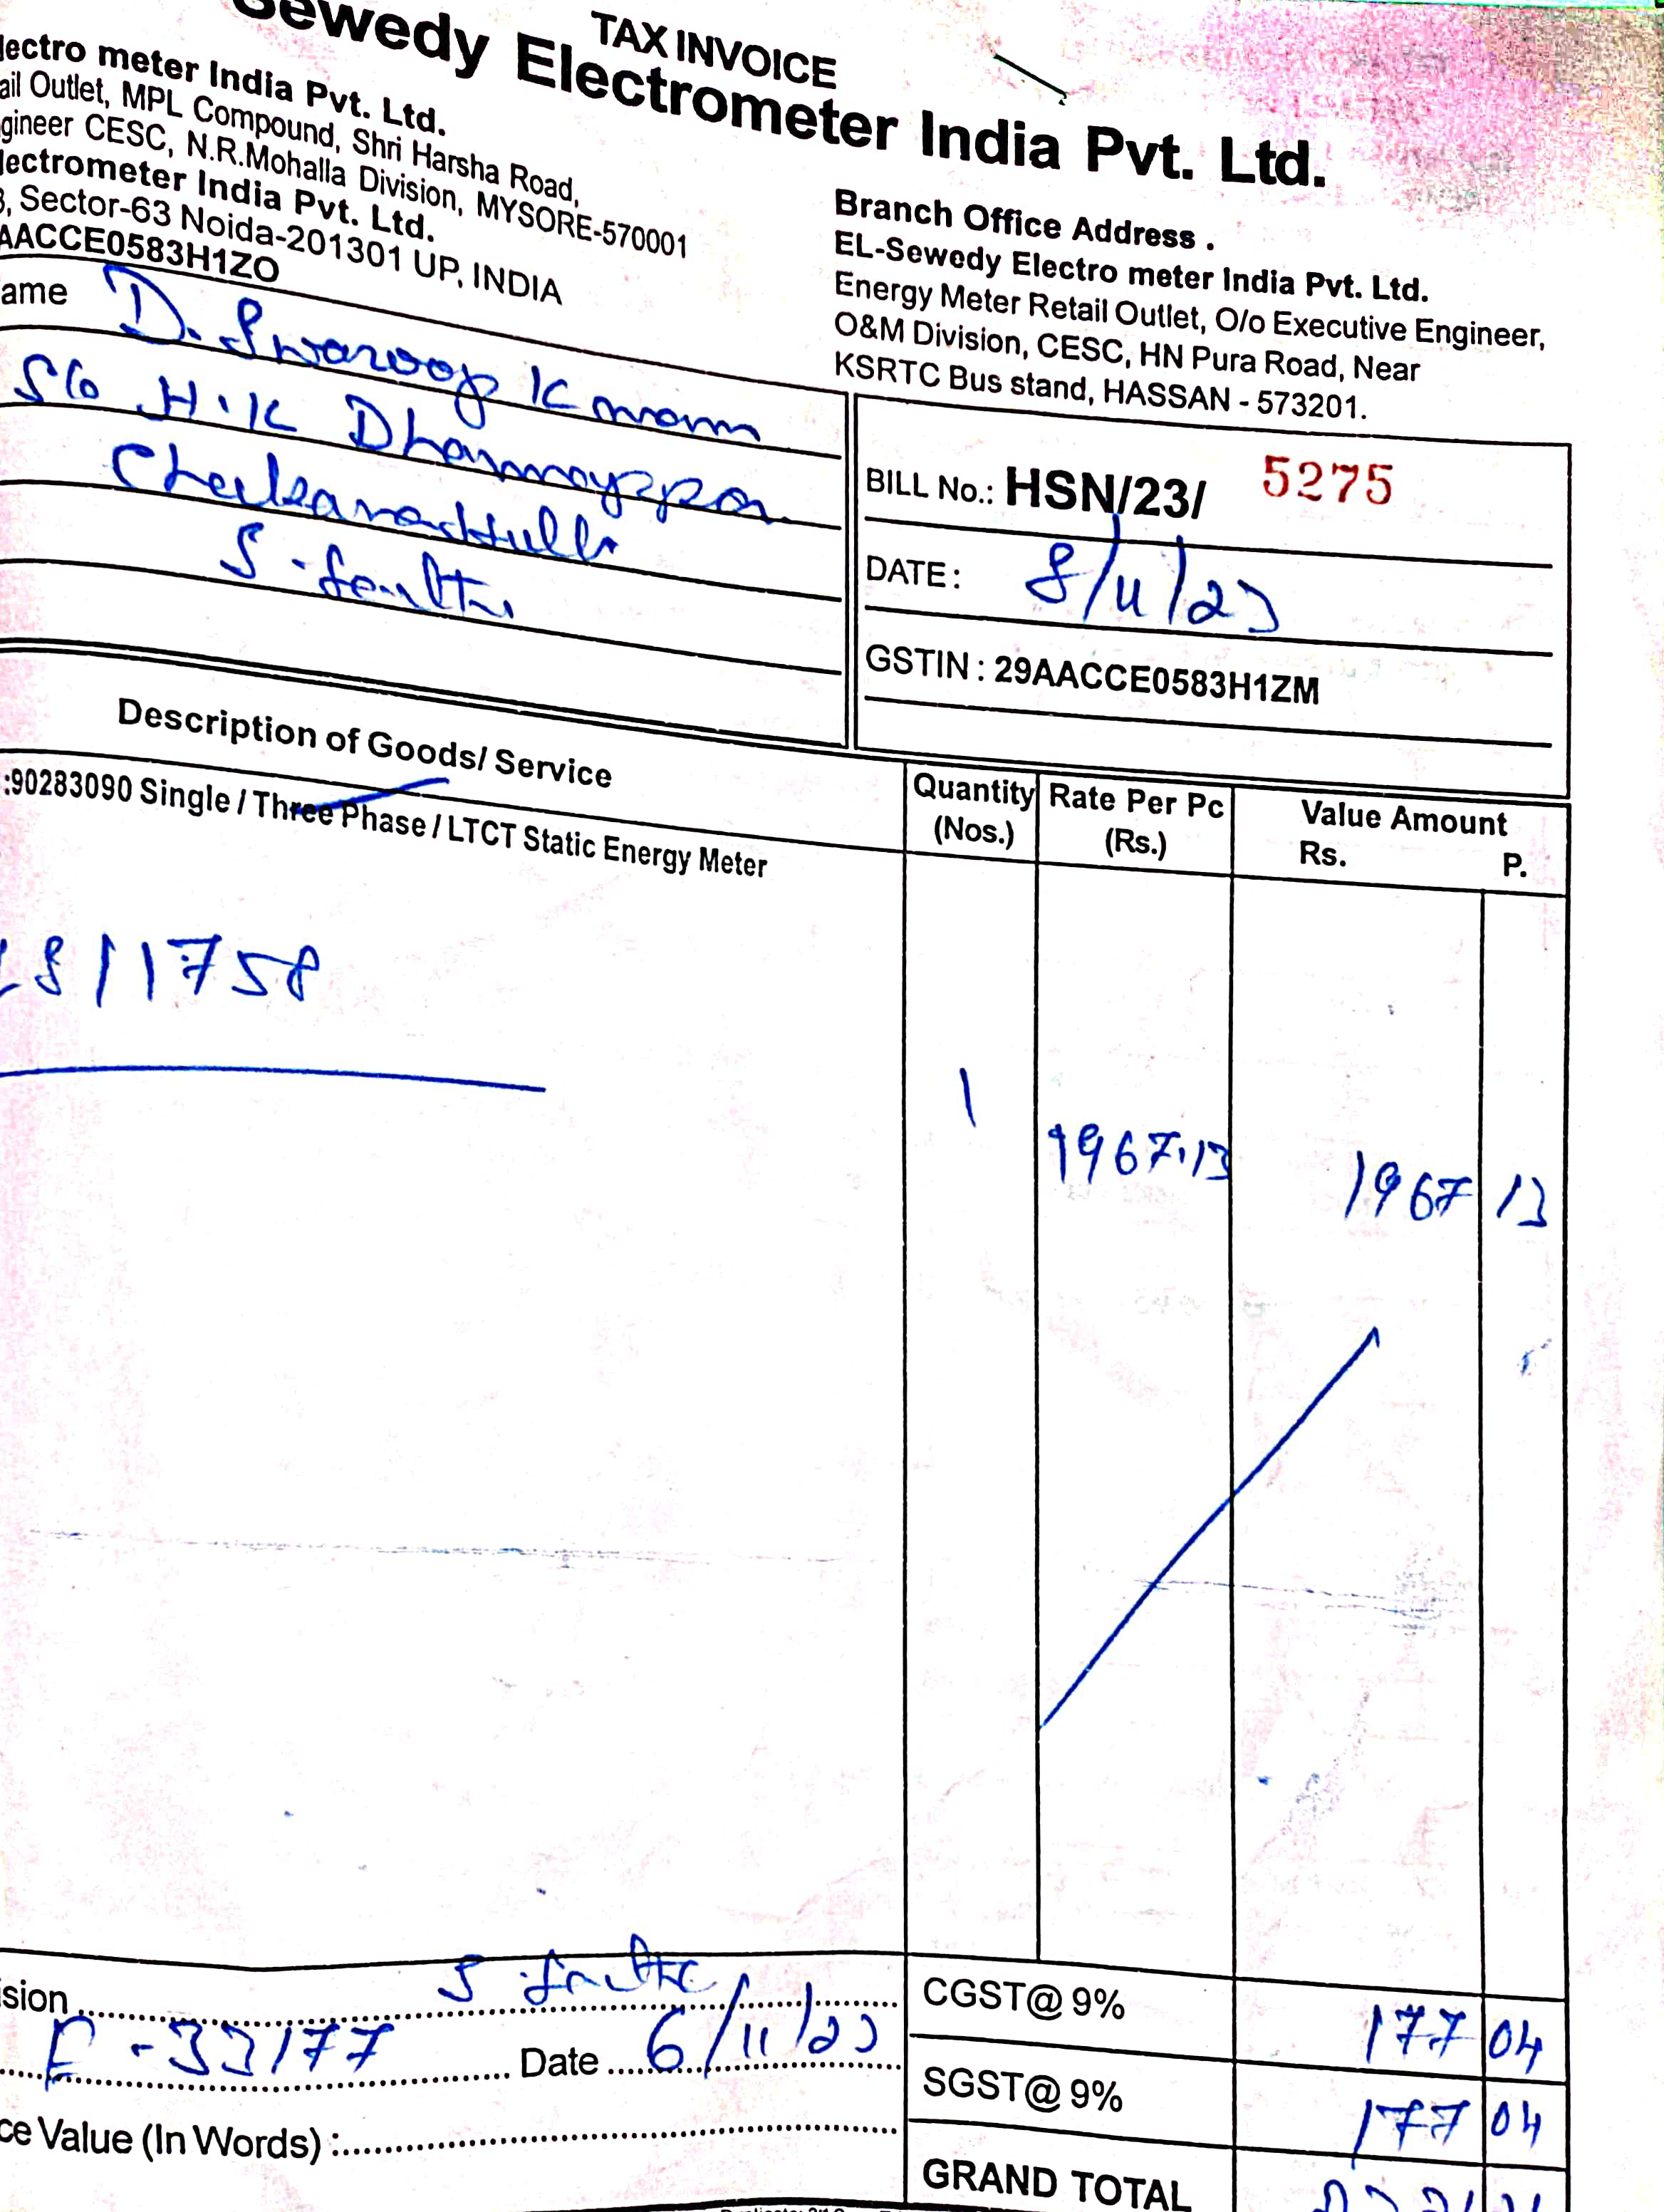 TAX INVOICE
Sewedy Electrometer India Pvt. Ltd.
lectro meter India Pvt. Ltd.
ail Outlet, MPL Compound, Shri Harsha Road,
gineer CESC, N.R.Mohalla Division, MYSORE-570001
lectrometer India Pvt. Ltd.
, Sector-63 Noida-201301 UP, INDIA
AACCE0583H1ZO
Branch Office Address .
EL-Sewedy Electro meter India Pvt. Ltd.
Energy Meter Retail Outlet, O/o Executive Engineer,
O&M Division, CESC, HN Pura Road, Near
KSRTC Bus stand, HASSAN - 573201.
ame D. Swaroop
S/o H.K
BILL No.: HSN/23/ 5275
DATE: 8/11/23
GSTIN : 29AACCE0583H1ZM
Description of Goods/ Service
Quantity (Nos.)
Rate Per Pc (Rs.)
Value Amount
Rs. P.
:90283090 Single / Three Phase / LTCT Static Energy Meter
811758
1 1967.13 1967 13
sion
33177 Date 6/11/23
ce Value (In Words) :
CGST@ 9% 177 04
SGST@ 9% 177 04
GRAND TOTAL